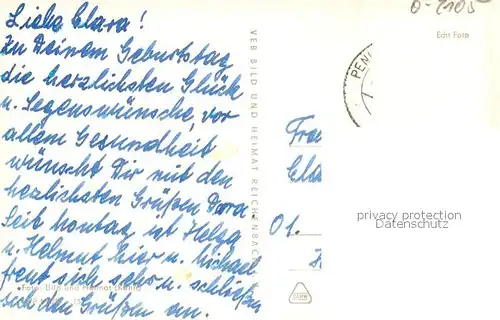 Liebe Clara!
Zu Deinem Geburtstag
die herzlichsten Glück
u. Segenswünsche, vor
allem Gesundheit
wünscht Dir mit den
herzlichsten Grüßen Dora.
Seit Montag ist Helga
u. Helmut hier u. Michael
freut sich sehr u. schließen
sich den Grüßen an.
Foto: Bild und Heimat
VEB BILD UND HEIMAT REICHENBACH
0-7105
Echt Foto
PEN
Fra
Cla
01.
privacy protection
Datenschutz